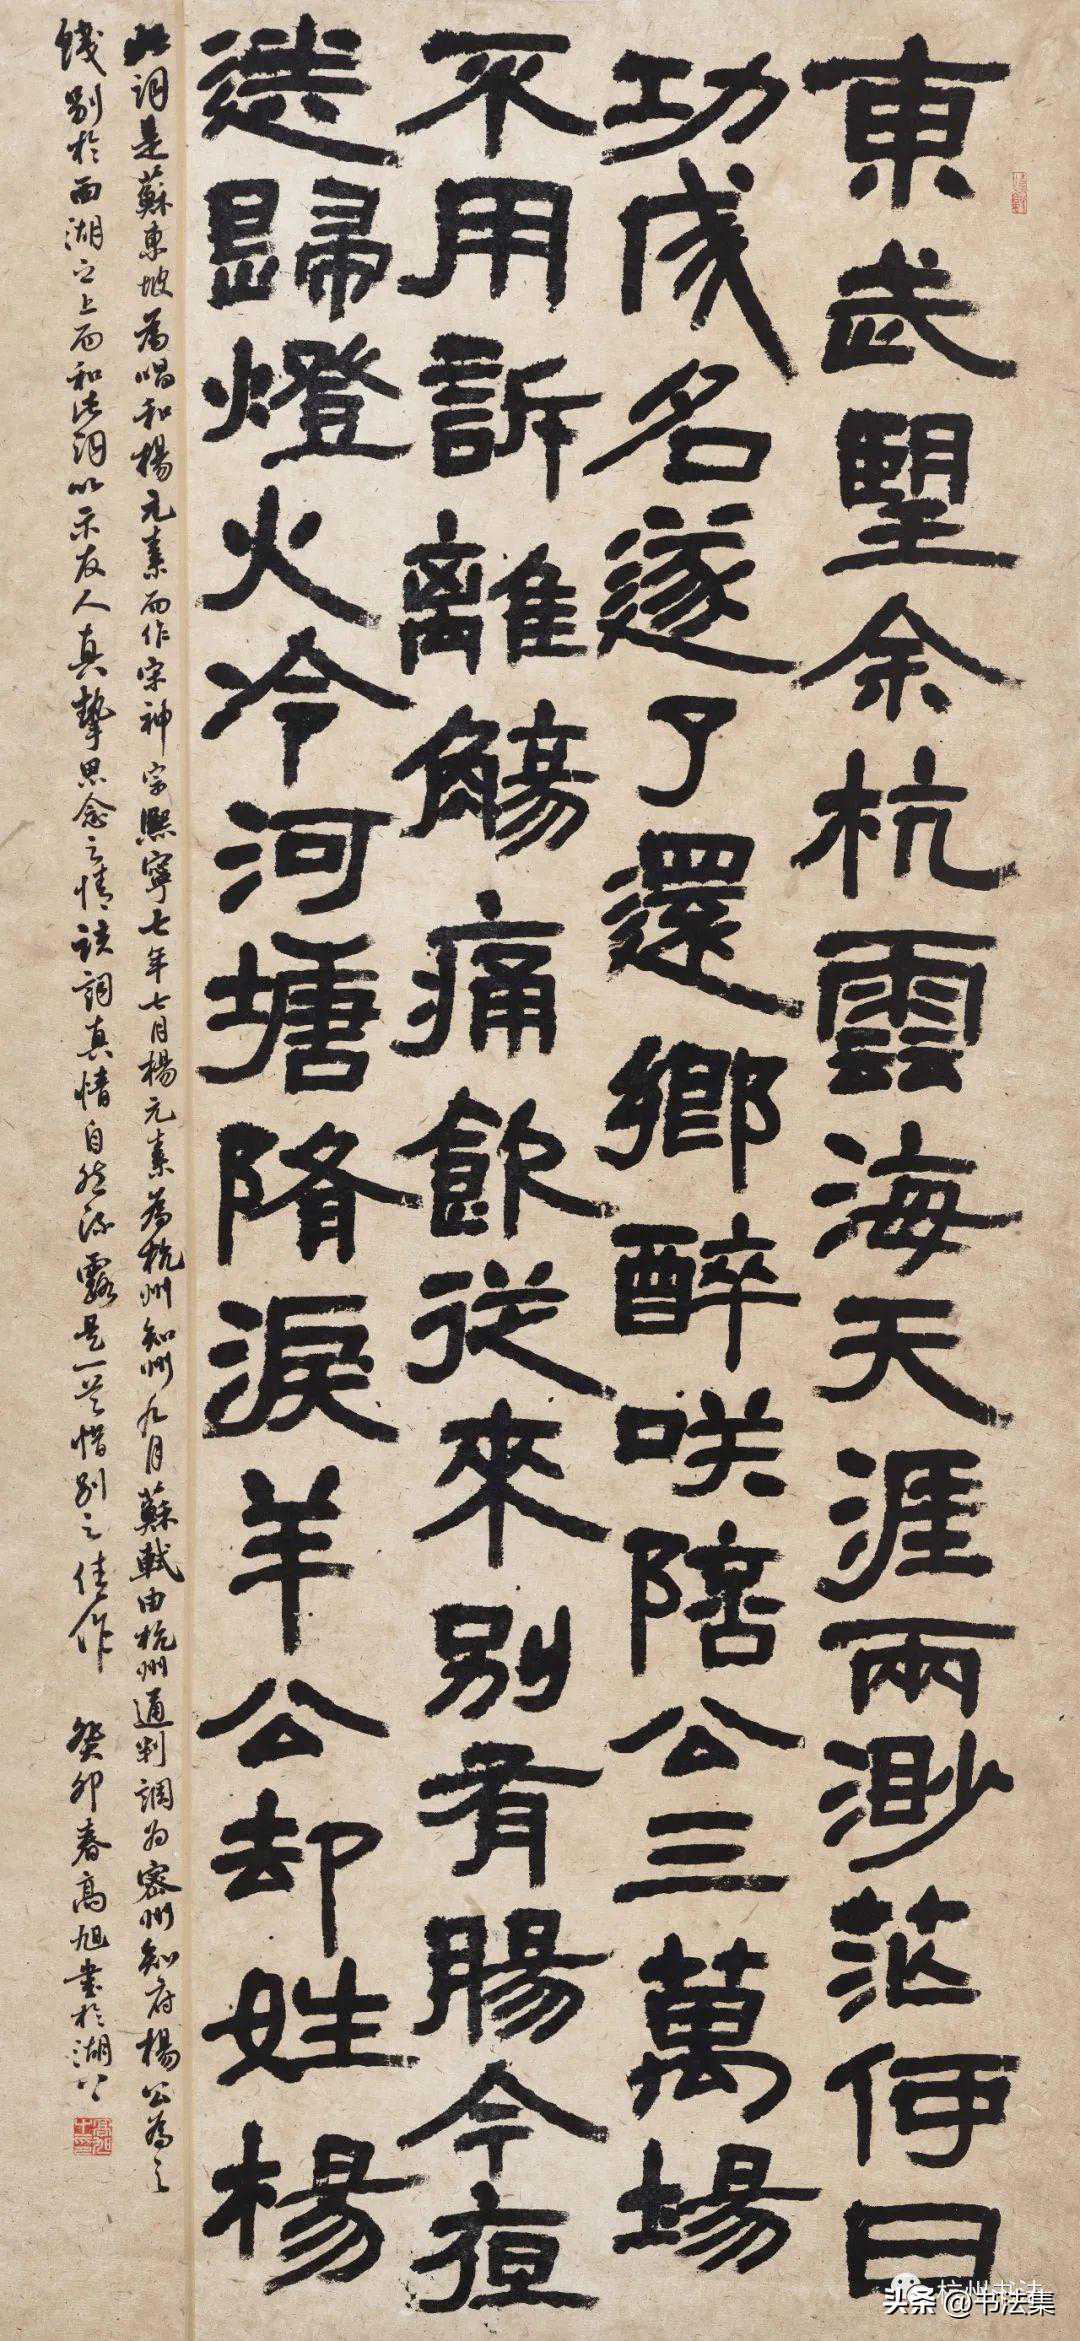 東武望余杭雲海天涯兩渺茫何日
功成名遂了還鄉醉咲陪公三萬場
不用訴離觴痛飲從來別有腸今夜
送歸燈火冷河塘隋淚羊公却姓楊
此詞是蘇東坡為唱和楊元素而作宋神宗熙寧七年七月楊元素為杭州知州九月蘇軾由杭州通判調為密州知府楊公為之
餞別於西湖之上而和此詞以示友人真摯思念之情該詞真情自然流露是一首惜別之佳作 癸卯春高旭書於湖上
杭州书法
头条 @书法集